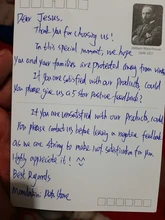 Dear Jesus.
Thank you for choosing us!
In this special moment, we hope
you and your families are protected away from
If you are satisfied with our products, could
you please give us a 5 star positive feedback?
If you are unsatisfied with our products, could
you please contact us before leaving a negative feedback
as we are strong to make satisfaction for you.
Highly appreciate it!
Best regards
Store